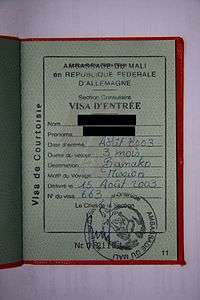 AMBASSADE DU MALI
en REPUBLIQUE FEDERALE
D'ALLEMAGNE
Section Consulaire
VISA D'ENTRÉE
Nom
Prénoms
Date d'entrée Août 2003
Durée du séjour 3 mois
Destination Bamako
Motif du Voyage Mission
Délivré le 15 Août 2003
N° du visa 663
Le Chef de la Section
Nr.
11
Visa de Courtoisie
AMBASSADE DU MALI